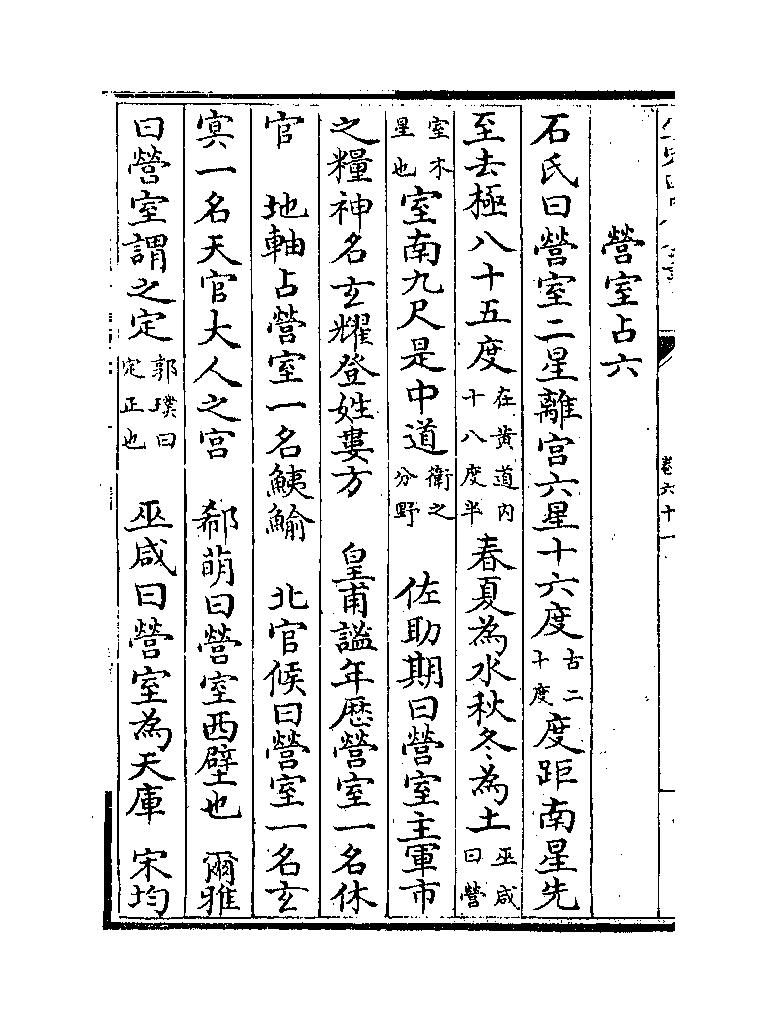 卷六十一
營室占六
石氏曰營室二星離宫六星十六度古二十度度距南星先
至去極八十五度在黄道内十八度半春夏為水秋冬為土巫咸曰營
室木星也室南九尺是中道衛之分野　佐助期曰營室主軍市
之糧神名玄耀登姓婁方　皇甫謐年厯營室一名休
官　地軸占營室一名鮧鮽　北官候曰營室一名玄
㝠一名天官大人之宫　郗萌曰營室西壁也　爾雅
曰營室謂之定郭璞曰定正也　巫咸曰營室為天庫　宋均